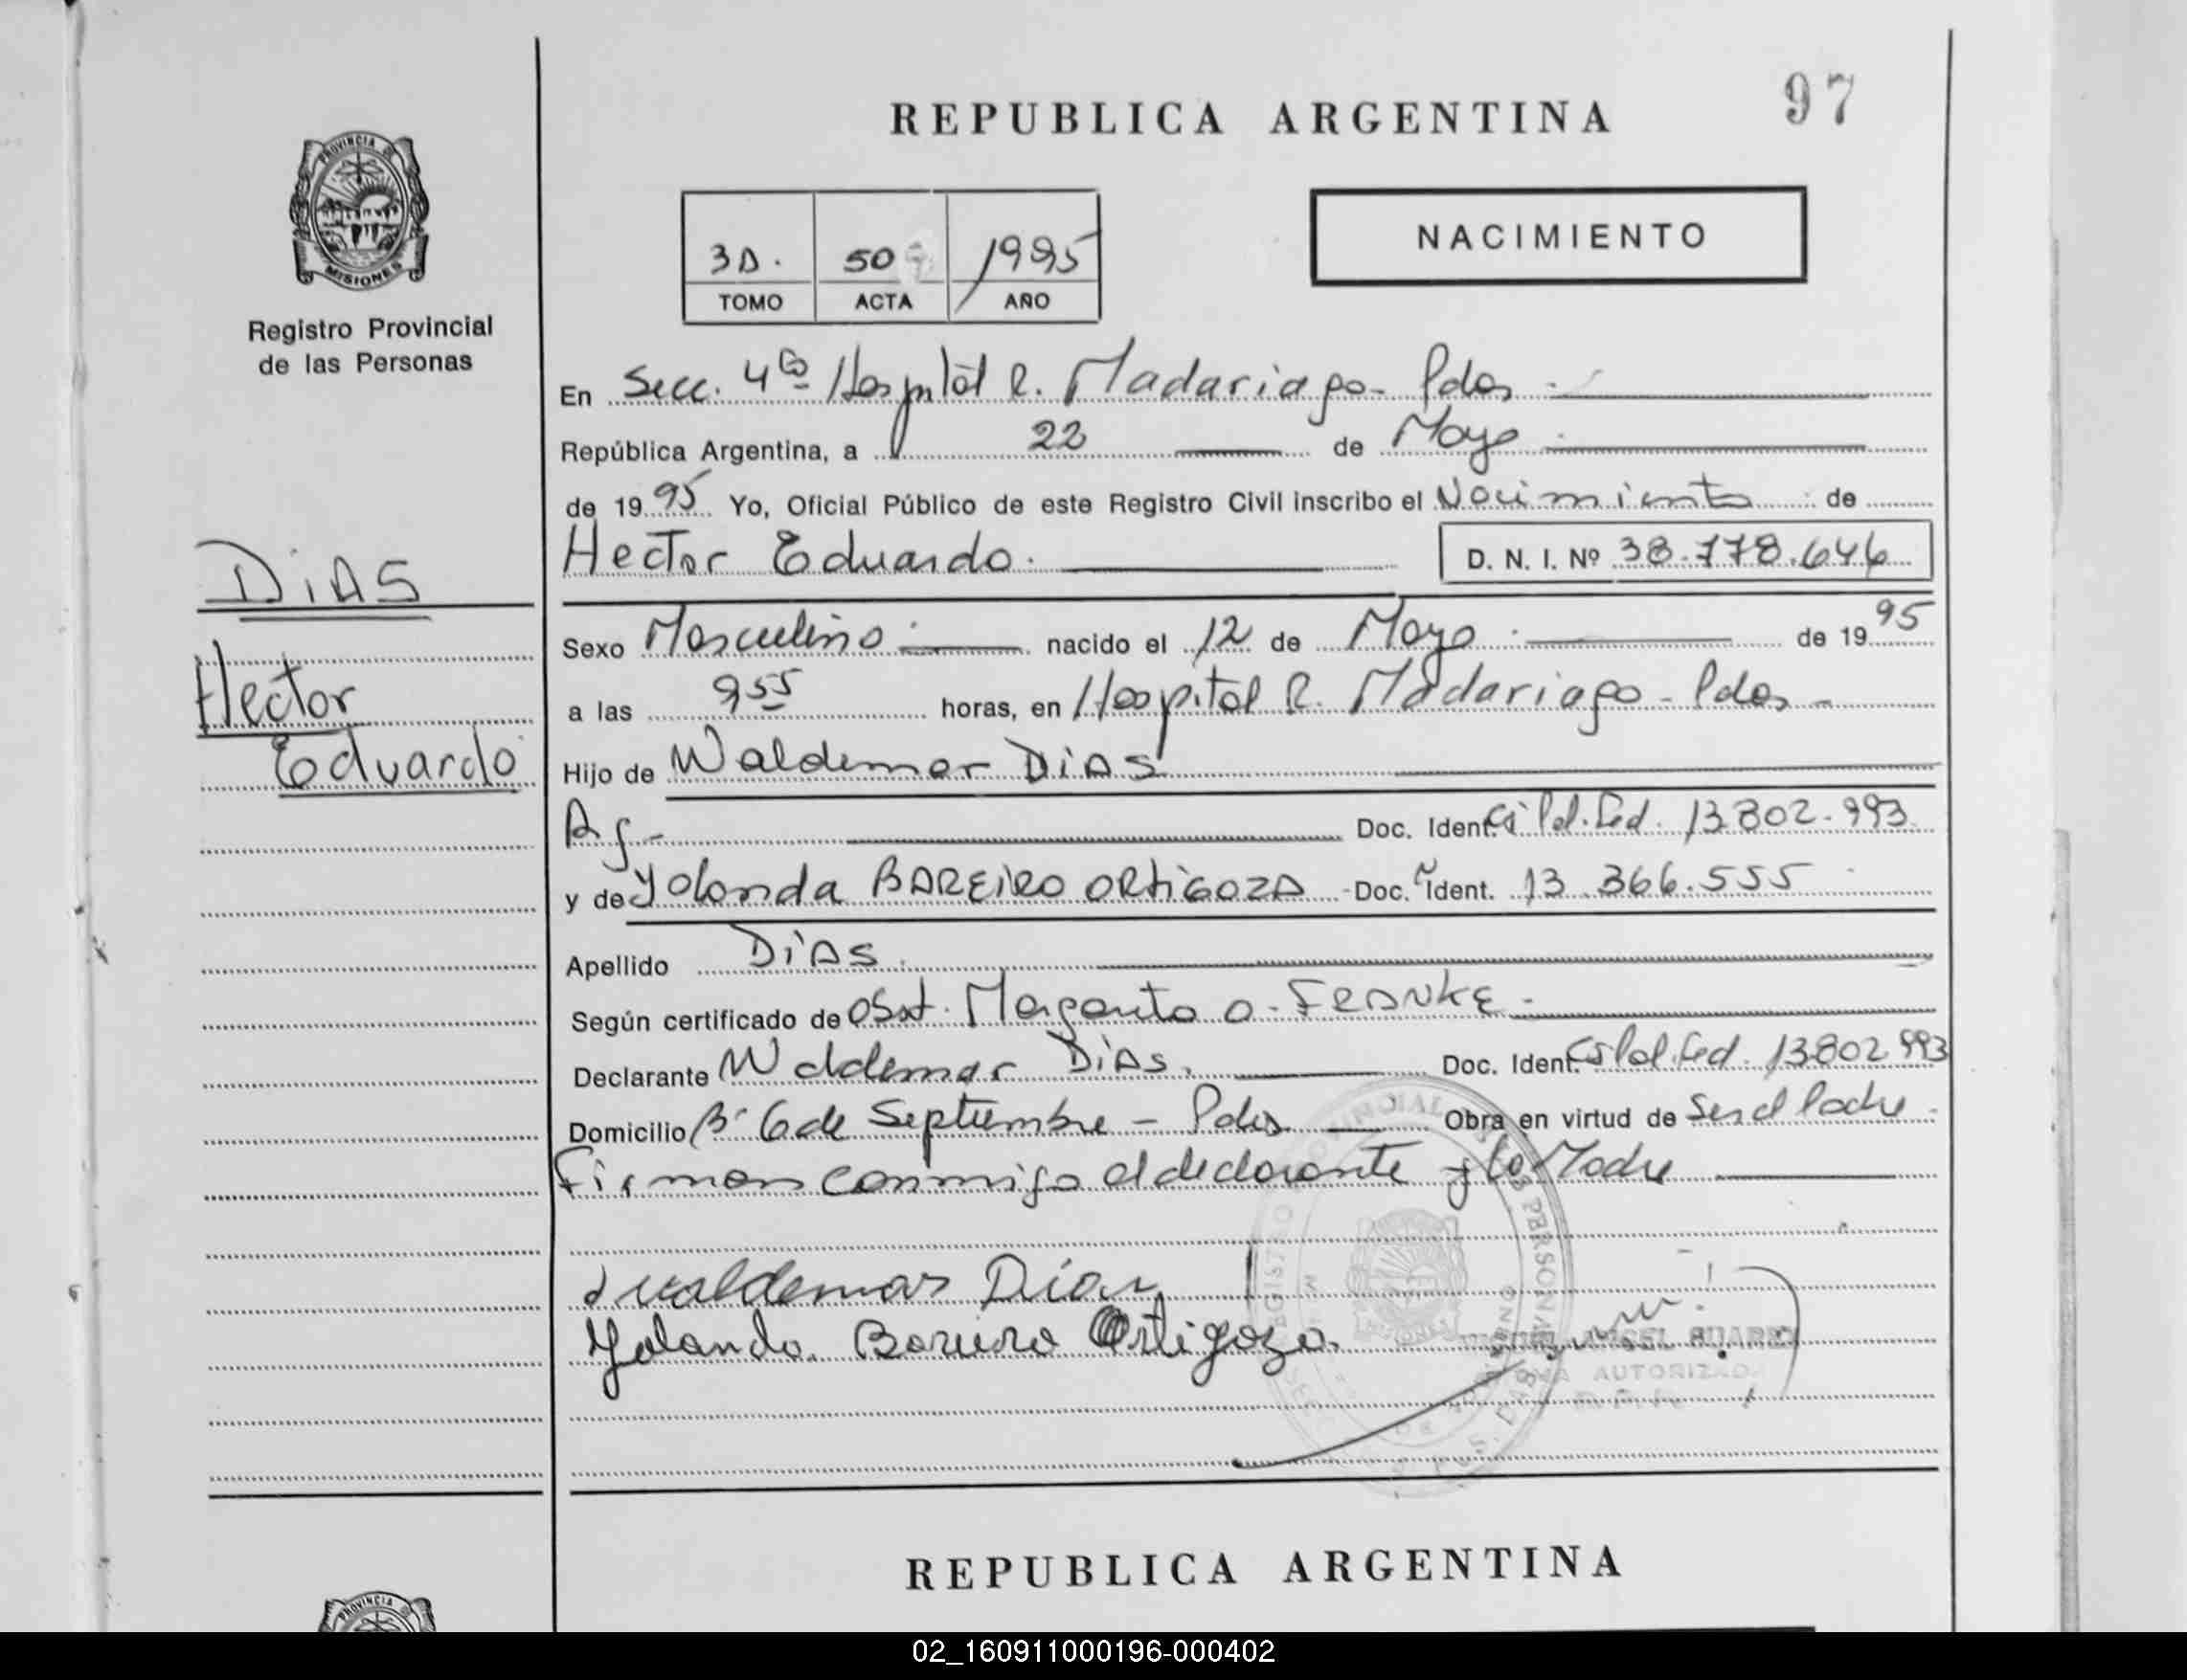 97
REPUBLICA ARGENTINA
PROVINCIA DE
MISIONES
Registro Provincial
de las Personas
NACIMIENTO
3A. 50 1995
TOMO ACTA AÑO
En Secc. 4ta Hospital R. Madariaga - Pdas.
República Argentina, a 22 de Mayo
de 1995 Yo, Oficial Público de este Registro Civil inscribo el Nacimiento de
Hector Eduardo. D. N. I. Nº 38.778.646
DiAS
Hector
Eduardo
Sexo Masculino nacido el 12 de Mayo de 1995
a las 955 horas, en Hospital R. Madariaga - Pdas -
Hijo de Waldemar DiAS
Arg.- Doc. Ident. Ci Pol. Fed. 13.802.993
y de Yolanda BAREiRO ORtiGOZA Doc. Ident. 13.366.555
Apellido DiAS.
Según certificado de Obst. Margarita a. FRANKE.
Declarante Waldemar DiAs. Doc. Ident. Ci Pol. Fed. 13.802.993
Domicilio Bº 6 de Septiembre - Pdas Obra en virtud de Ser el Padre.
Firman conmigo el declarante y la Madre
Waldemar Días
Yolanda. Bareiro Ortigoza.
REGISTRO PROVINCIAL DE LAS PERSONAS
ANGEL SUAREZ
AUTORIZADA
REPUBLICA ARGENTINA
PROVINCIA
02_160911000196-000402